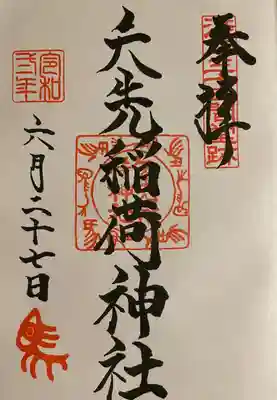 奉拝
矢先稲荷神社
令和
弐年
六月二十七日
馬